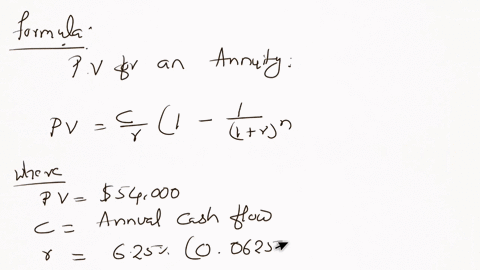 Formula:
P.V for an Annuity:
PV = C/r (1 - 1/(1+r)^n
where
PV = $54,000
C = Annual cash flow
r = 6.25% (0.0625